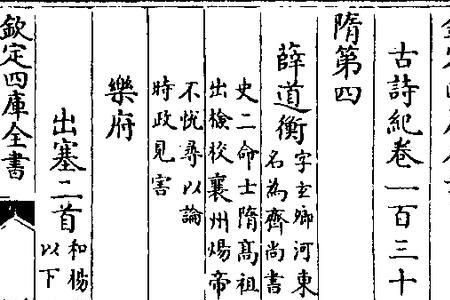 古詩紀卷一百三十
隋第四
薛道衡
字玄卿河東
名為齊尚書
史二命士隋髙祖
出檢校襄州煬帝
不悦尋以論
時政見害
樂府
出塞二首
和楊
以下
欽定四庫全書